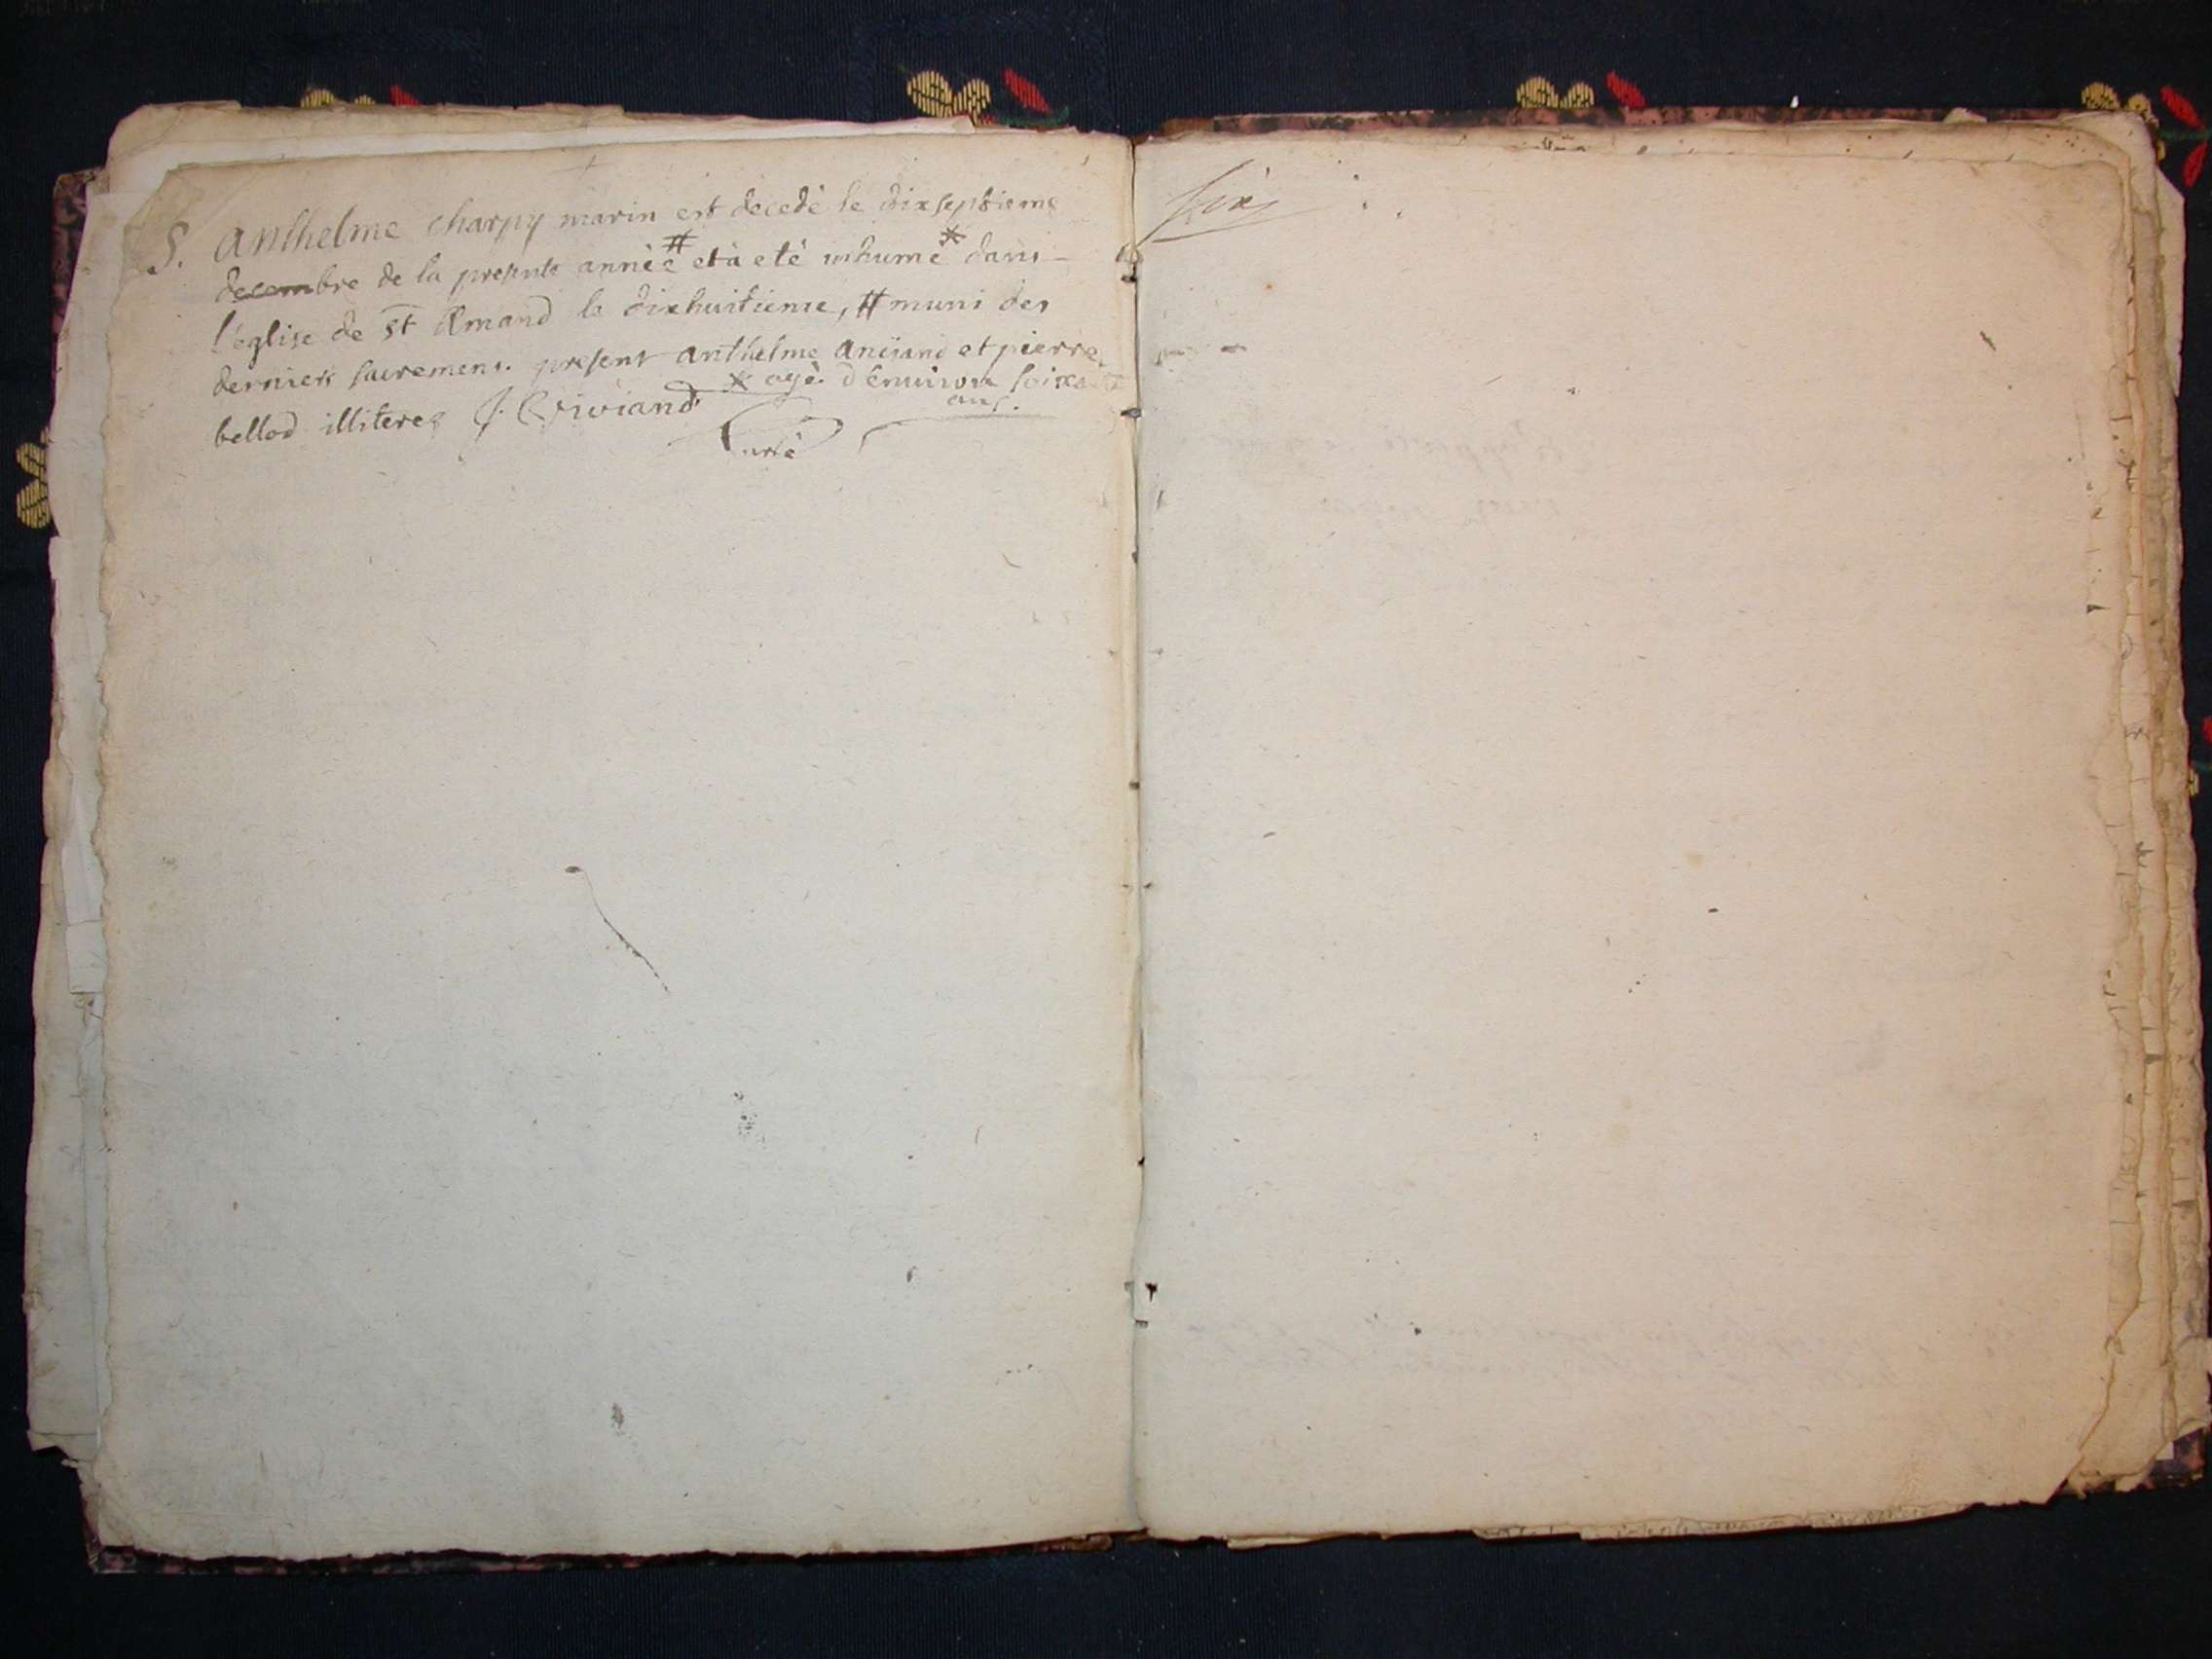 S. Anthelme charpy marin est decedé le dixseptieme
decembre de la presente année # et à eté inhumé * dans
l'église de St Amand le dixhuitieme, # muni des
derniers sacremens. present anthelme et pierre
* agé d'environ soixante
bellod illiteres J. C. Riviand ans.
curé
six